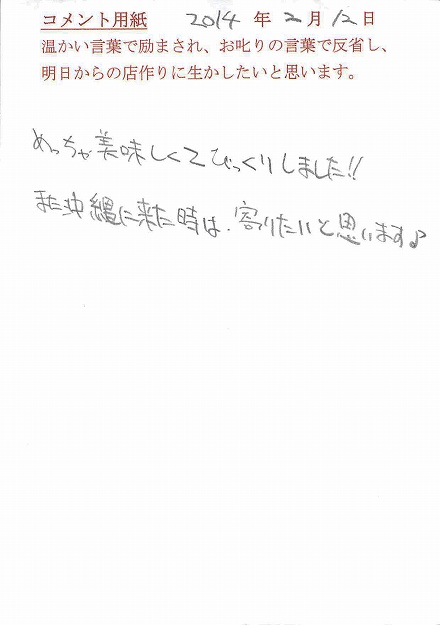 コメント用紙 2014年2月12日
温かい言葉で励まされ、お叱りの言葉で反省し、
明日からの店作りに生かしたいと思います。
めっちゃ美味しくてびっくりしました!!
また沖縄に来た時は、寄りたいと思います♪